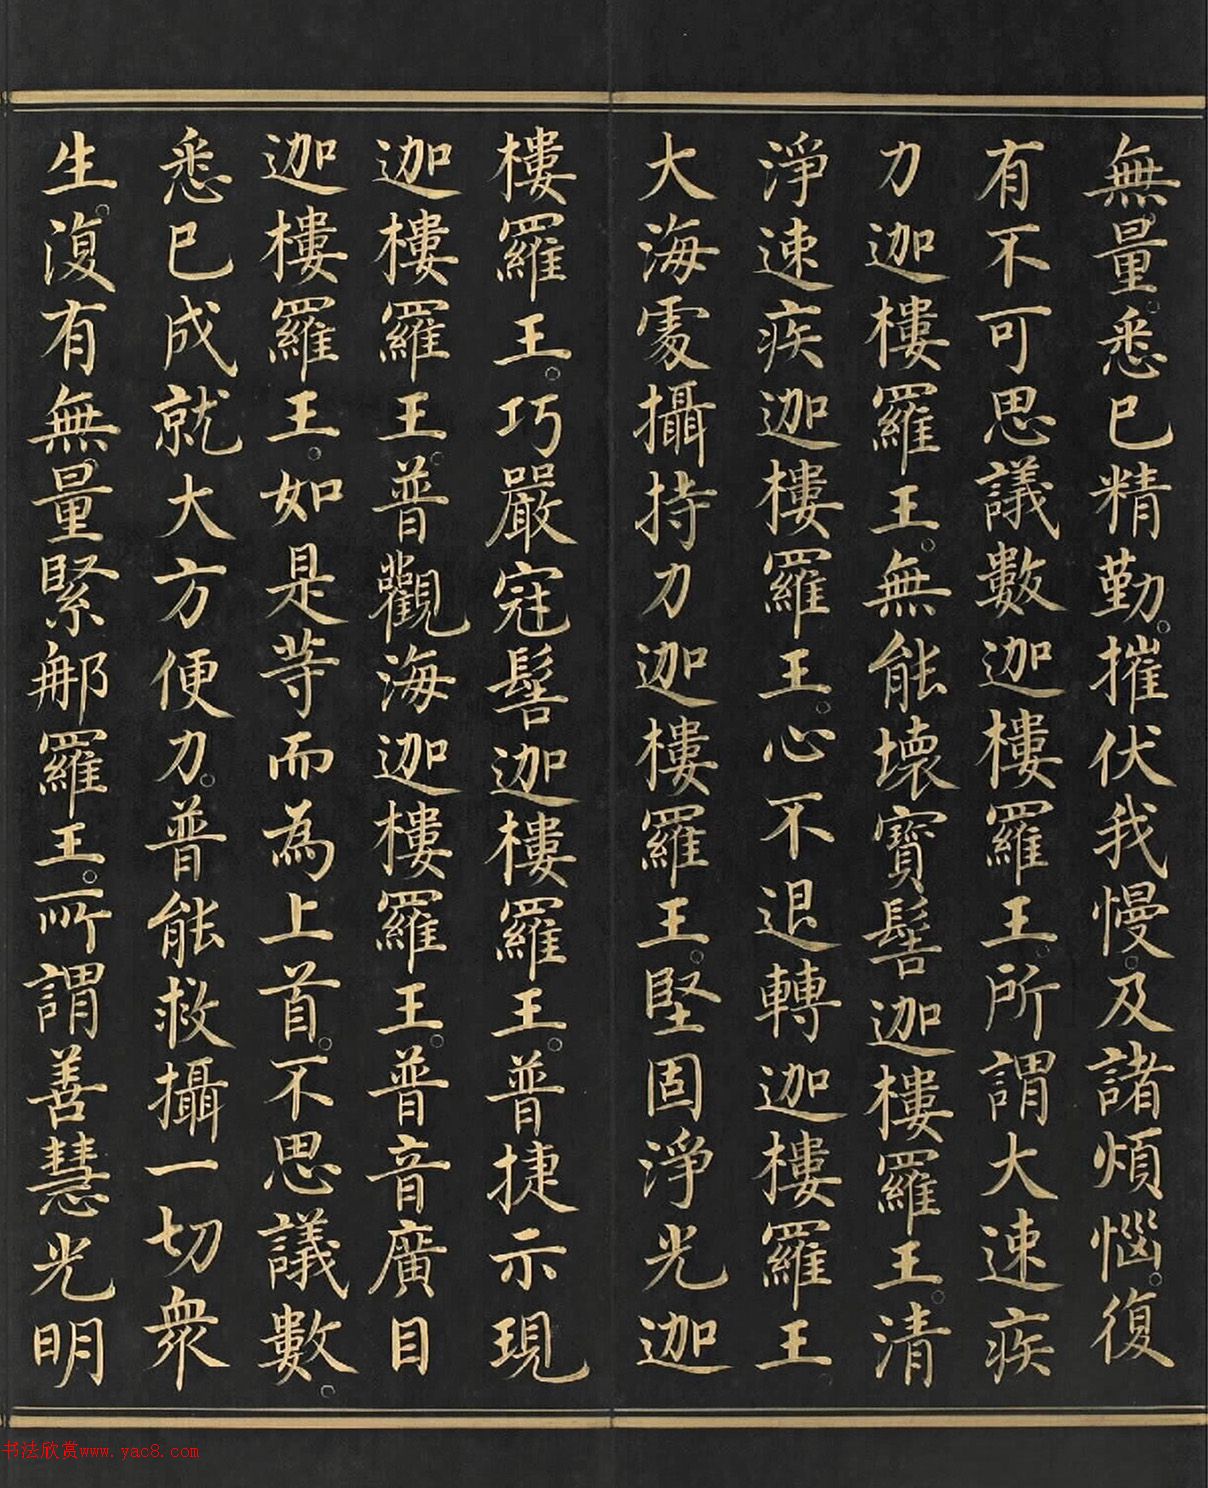 無量。悉已精勤。摧伏我慢。及諸煩惱。復
有不可思議數迦樓羅王。所謂大速疾
力迦樓羅王。無能壞寶髻迦樓羅王。清
淨速疾迦樓羅王。心不退轉迦樓羅王。
大海處攝持力迦樓羅王。堅固淨光迦
樓羅王。巧嚴冠髻迦樓羅王。普捷示現
迦樓羅王。普觀海迦樓羅王。普音廣目
迦樓羅王。如是等而為上首。不思議數。
悉已成就大方便力。普能救攝一切眾
生。復有無量緊那羅王。所謂善慧光明
书法欣赏www.yac8.com